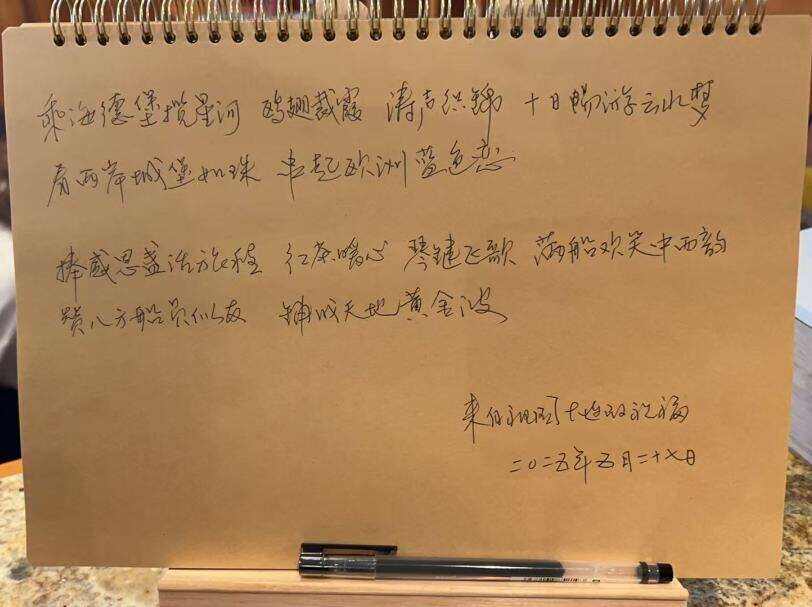 乘海德堡揽星河 鸥翅裁霞 涛声织锦 十日畅游云水梦
看两岸城堡如珠 串起欧洲蓝色恋
捧感恩盏话旅程 红茶暖心 琴键飞歌 满船欢笑中西韵
赞八方船员似友 铺成天地黄金波
来自祖国大地的祝福
二〇二五年五月二十七日